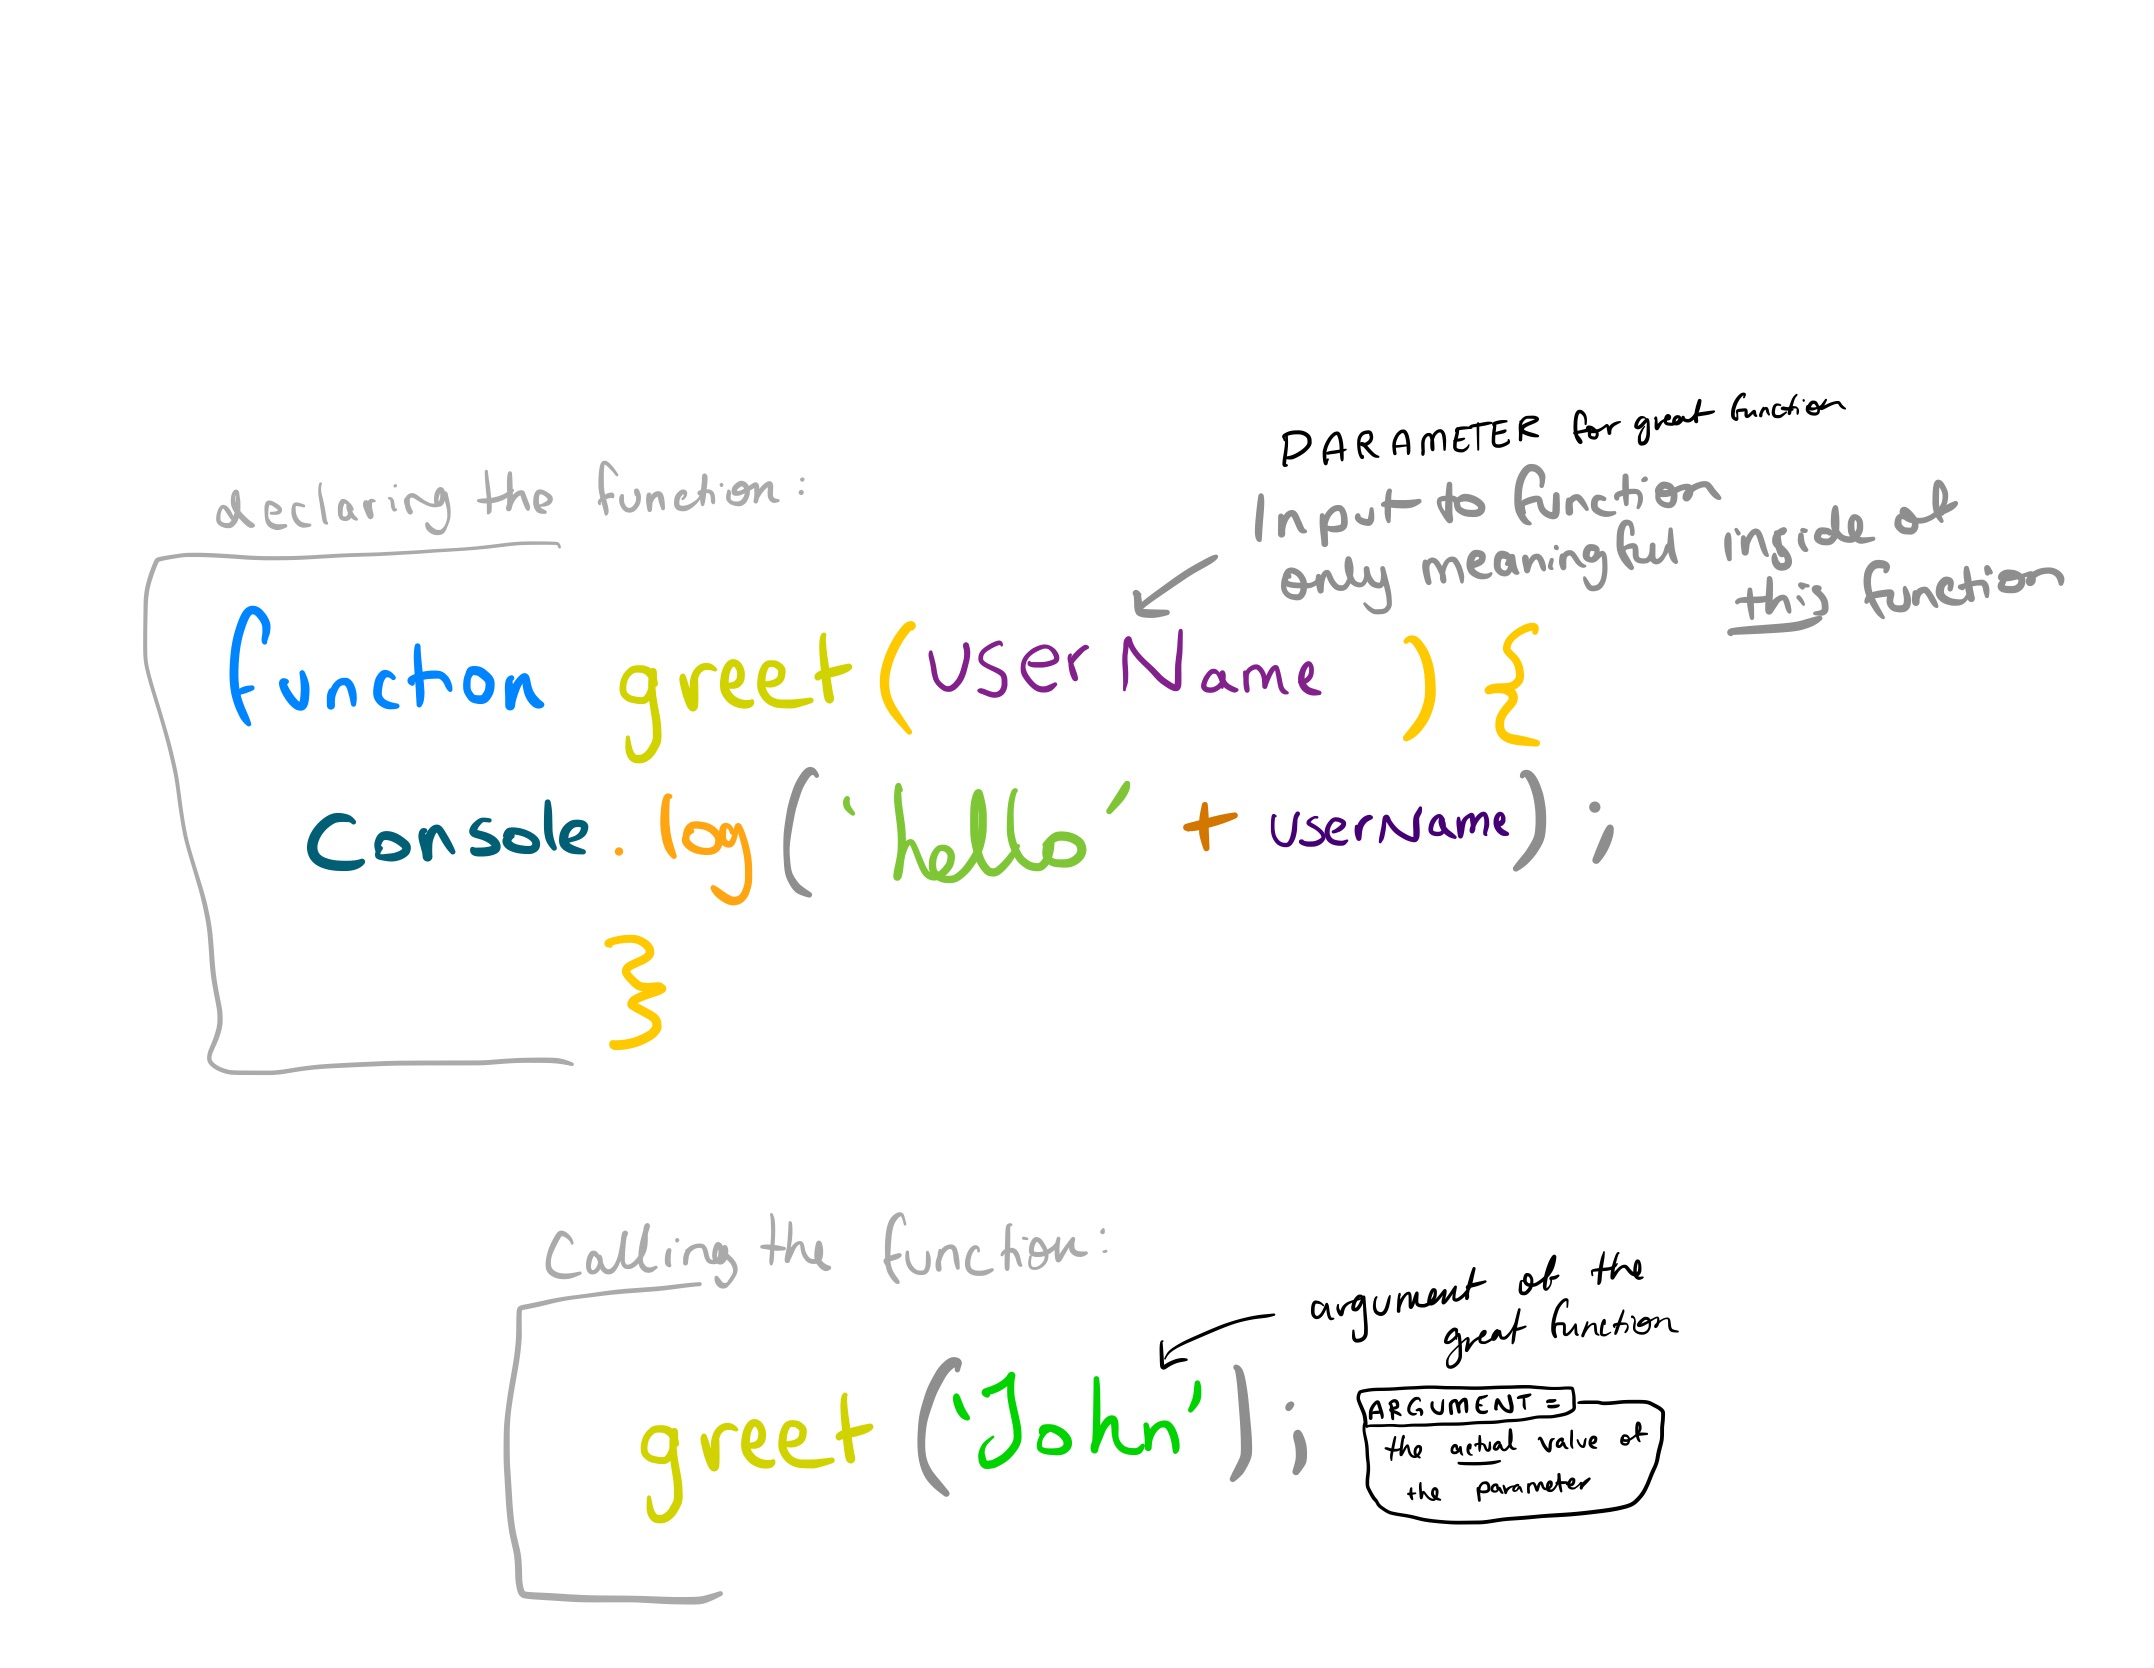 PARAMETER for greet function
Input to function
only meaningful inside of
this function
declaring the function:
function greet(userName) {
Console.log('hello' + userName);
}
Calling the function:
argument of the
greet function
greet('John');
ARGUMENT =
the actual value of
the parameter